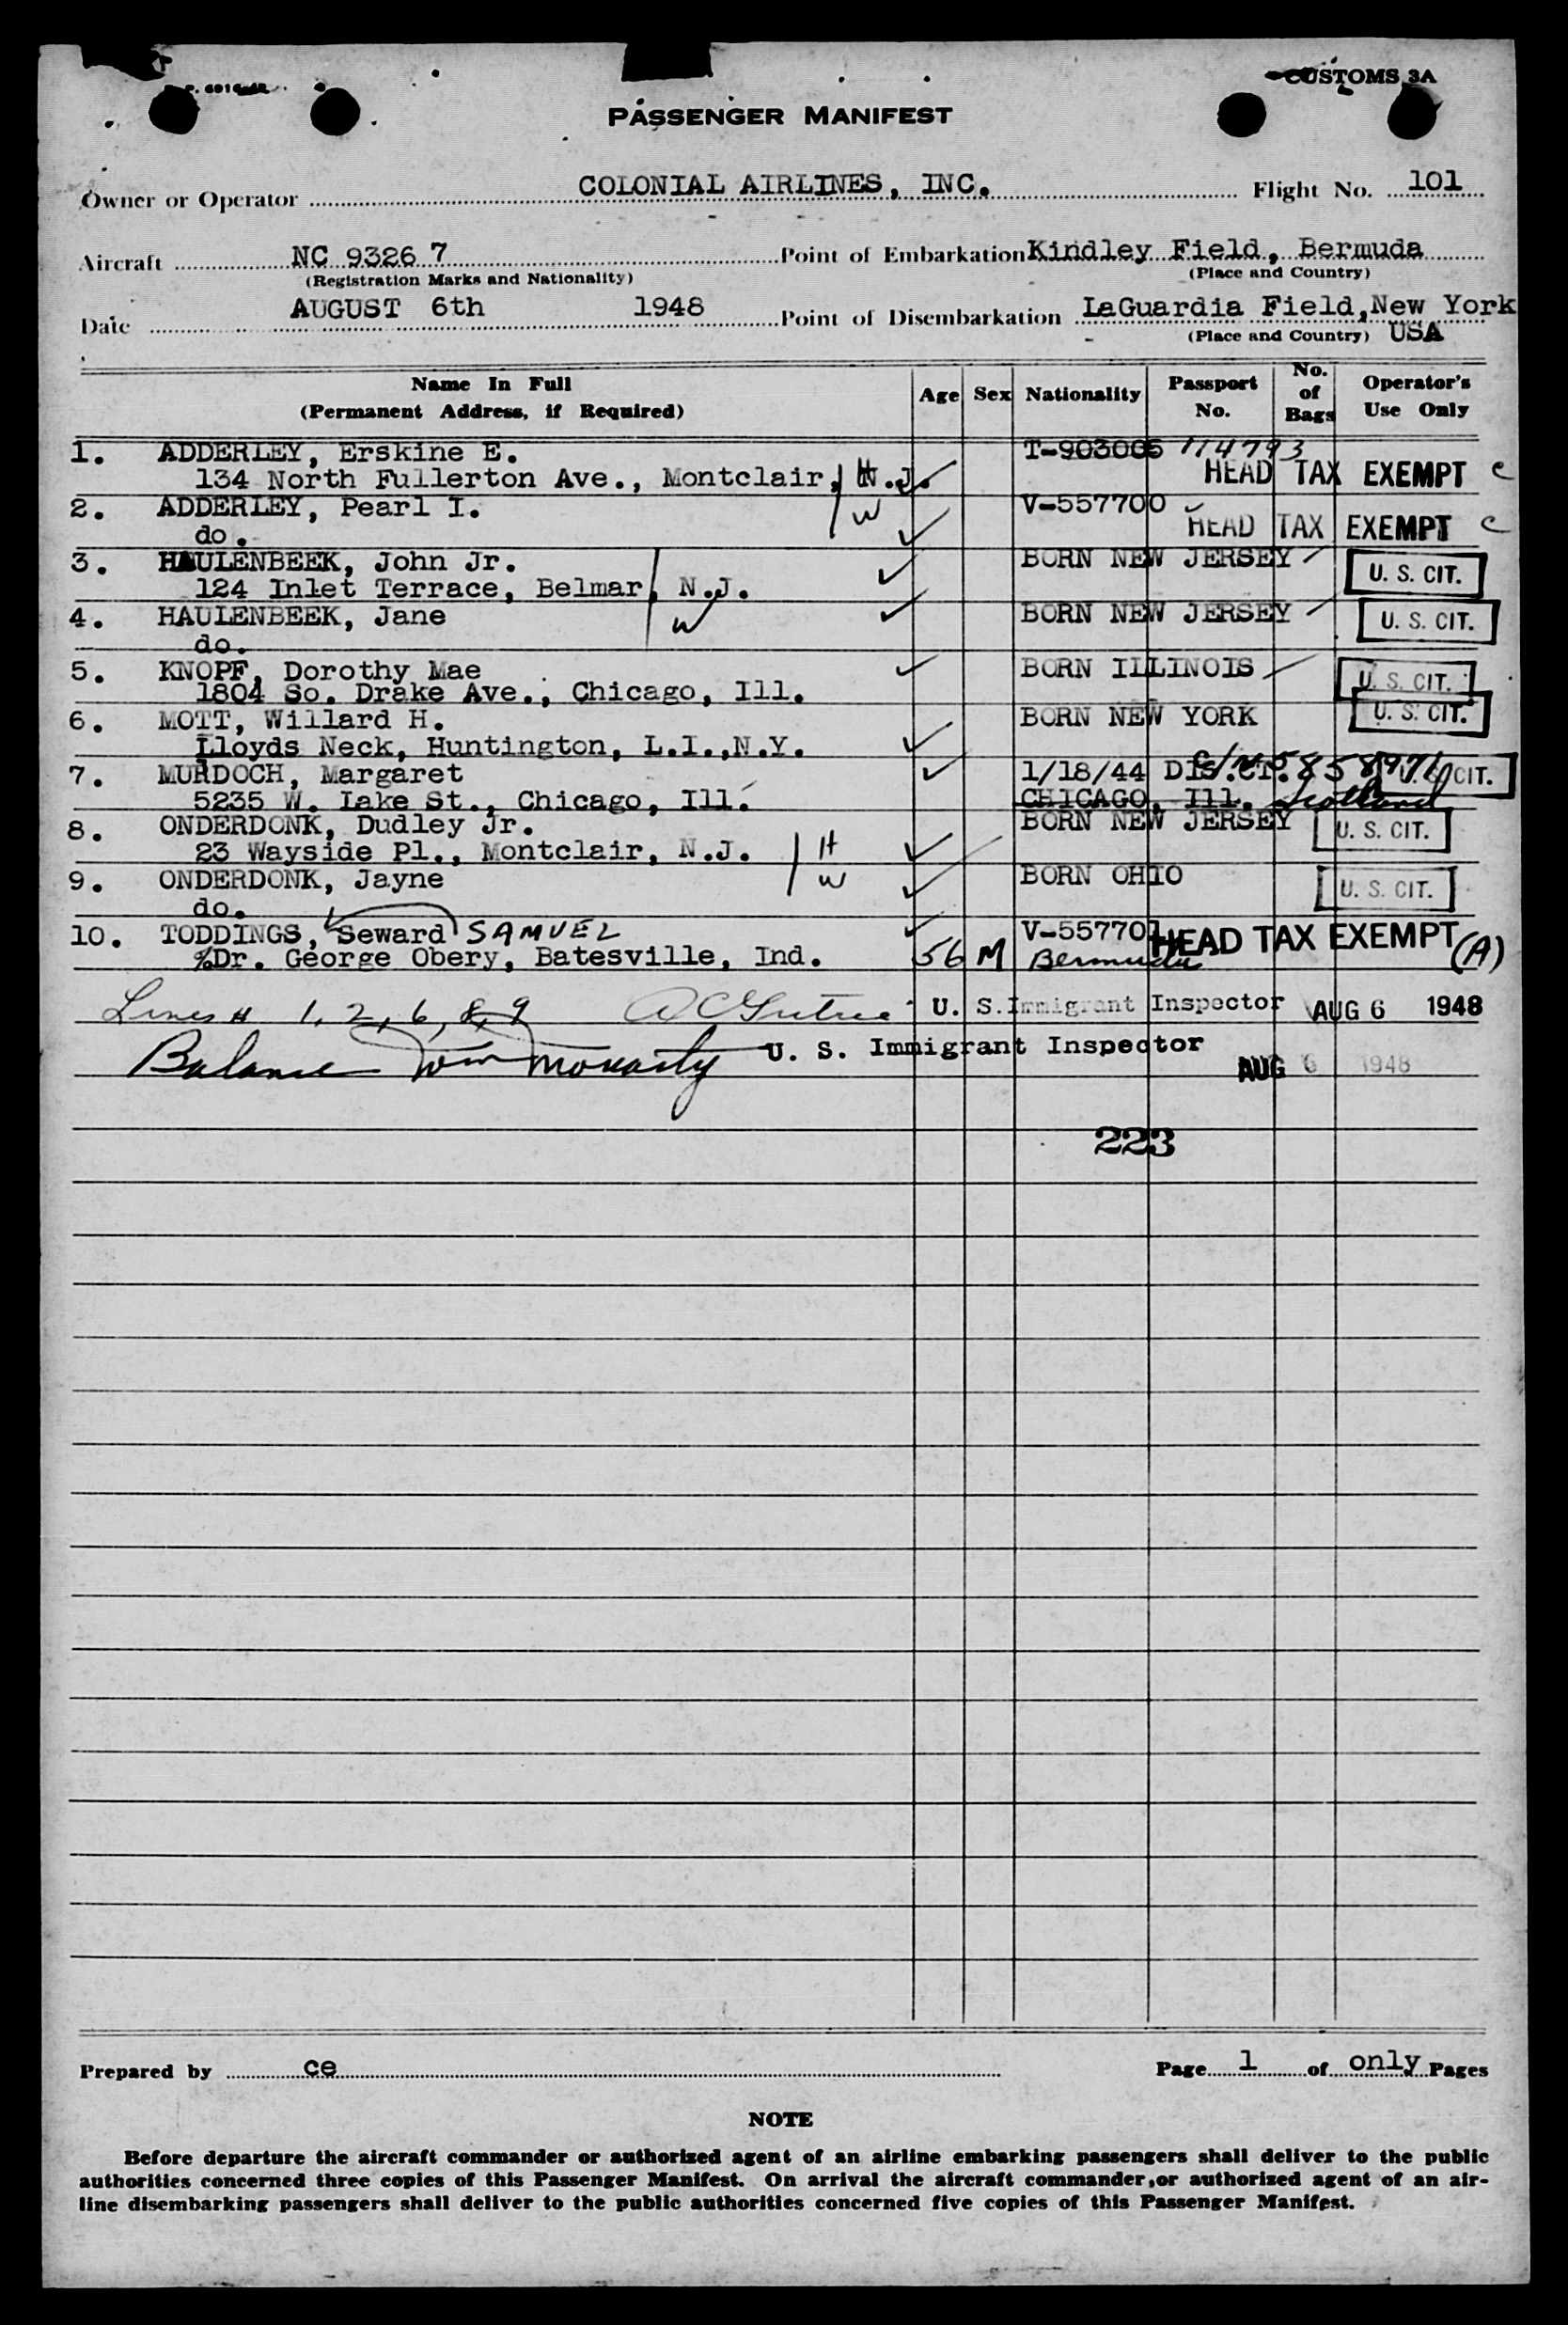 CUSTOMS 3A
PASSENGER MANIFEST
Owner or Operator COLONIAL AIRLINES, INC. Flight No. 101
Aircraft NC 93267 Point of Embarkation Kindley Field, Bermuda
(Registration Marks and Nationality) (Place and Country)
Date AUGUST 6th 1948 Point of Disembarkation LaGuardia Field, New York
(Place and Country) USA
Name In Full (Permanent Address, if Required) Age Sex Nationality Passport No. No. of Bags Operator's Use Only
1. ADDERLEY, Erskine E. T-903005 114793
134 North Fullerton Ave., Montclair, N.J. H HEAD TAX EXEMPT C
2. ADDERLEY, Pearl I. W V-557700
do. HEAD TAX EXEMPT C
3. HAULENBEEK, John Jr. BORN NEW JERSEY U. S. CIT.
124 Inlet Terrace, Belmar, N.J.
4. HAULENBEEK, Jane W BORN NEW JERSEY U. S. CIT.
do.
5. KNOPF, Dorothy Mae BORN ILLINOIS U. S. CIT.
1804 So. Drake Ave., Chicago, Ill.
6. MOTT, Willard H. BORN NEW YORK U. S. CIT.
Lloyds Neck, Huntington, L.I.,N.Y.
7. MURDOCH, Margaret 1/18/44 DIS.CT. 5858971 U. S. CIT.
5235 W. Lake St., Chicago, Ill. CHICAGO, Ill. Scotland
8. ONDERDONK, Dudley Jr. BORN NEW JERSEY U. S. CIT.
23 Wayside Pl., Montclair, N.J. H
9. ONDERDONK, Jayne W BORN OHIO U. S. CIT.
do.
10. TODDINGS, Seward SAMUEL V-557701 HEAD TAX EXEMPT (A)
%Dr. George Obery, Batesville, Ind. 56 M Bermuda
Lines # 1, 2, 6, 8, 9 U. S. Immigrant Inspector AUG 6 1948
Balance Wm Moriarty U. S. Immigrant Inspector
AUG 6 1948
223
Prepared by ce Page 1 of only Pages
NOTE
Before departure the aircraft commander or authorized agent of an airline embarking passengers shall deliver to the public
authorities concerned three copies of this Passenger Manifest. On arrival the aircraft commander, or authorized agent of an air-
line disembarking passengers shall deliver to the public authorities concerned five copies of this Passenger Manifest.